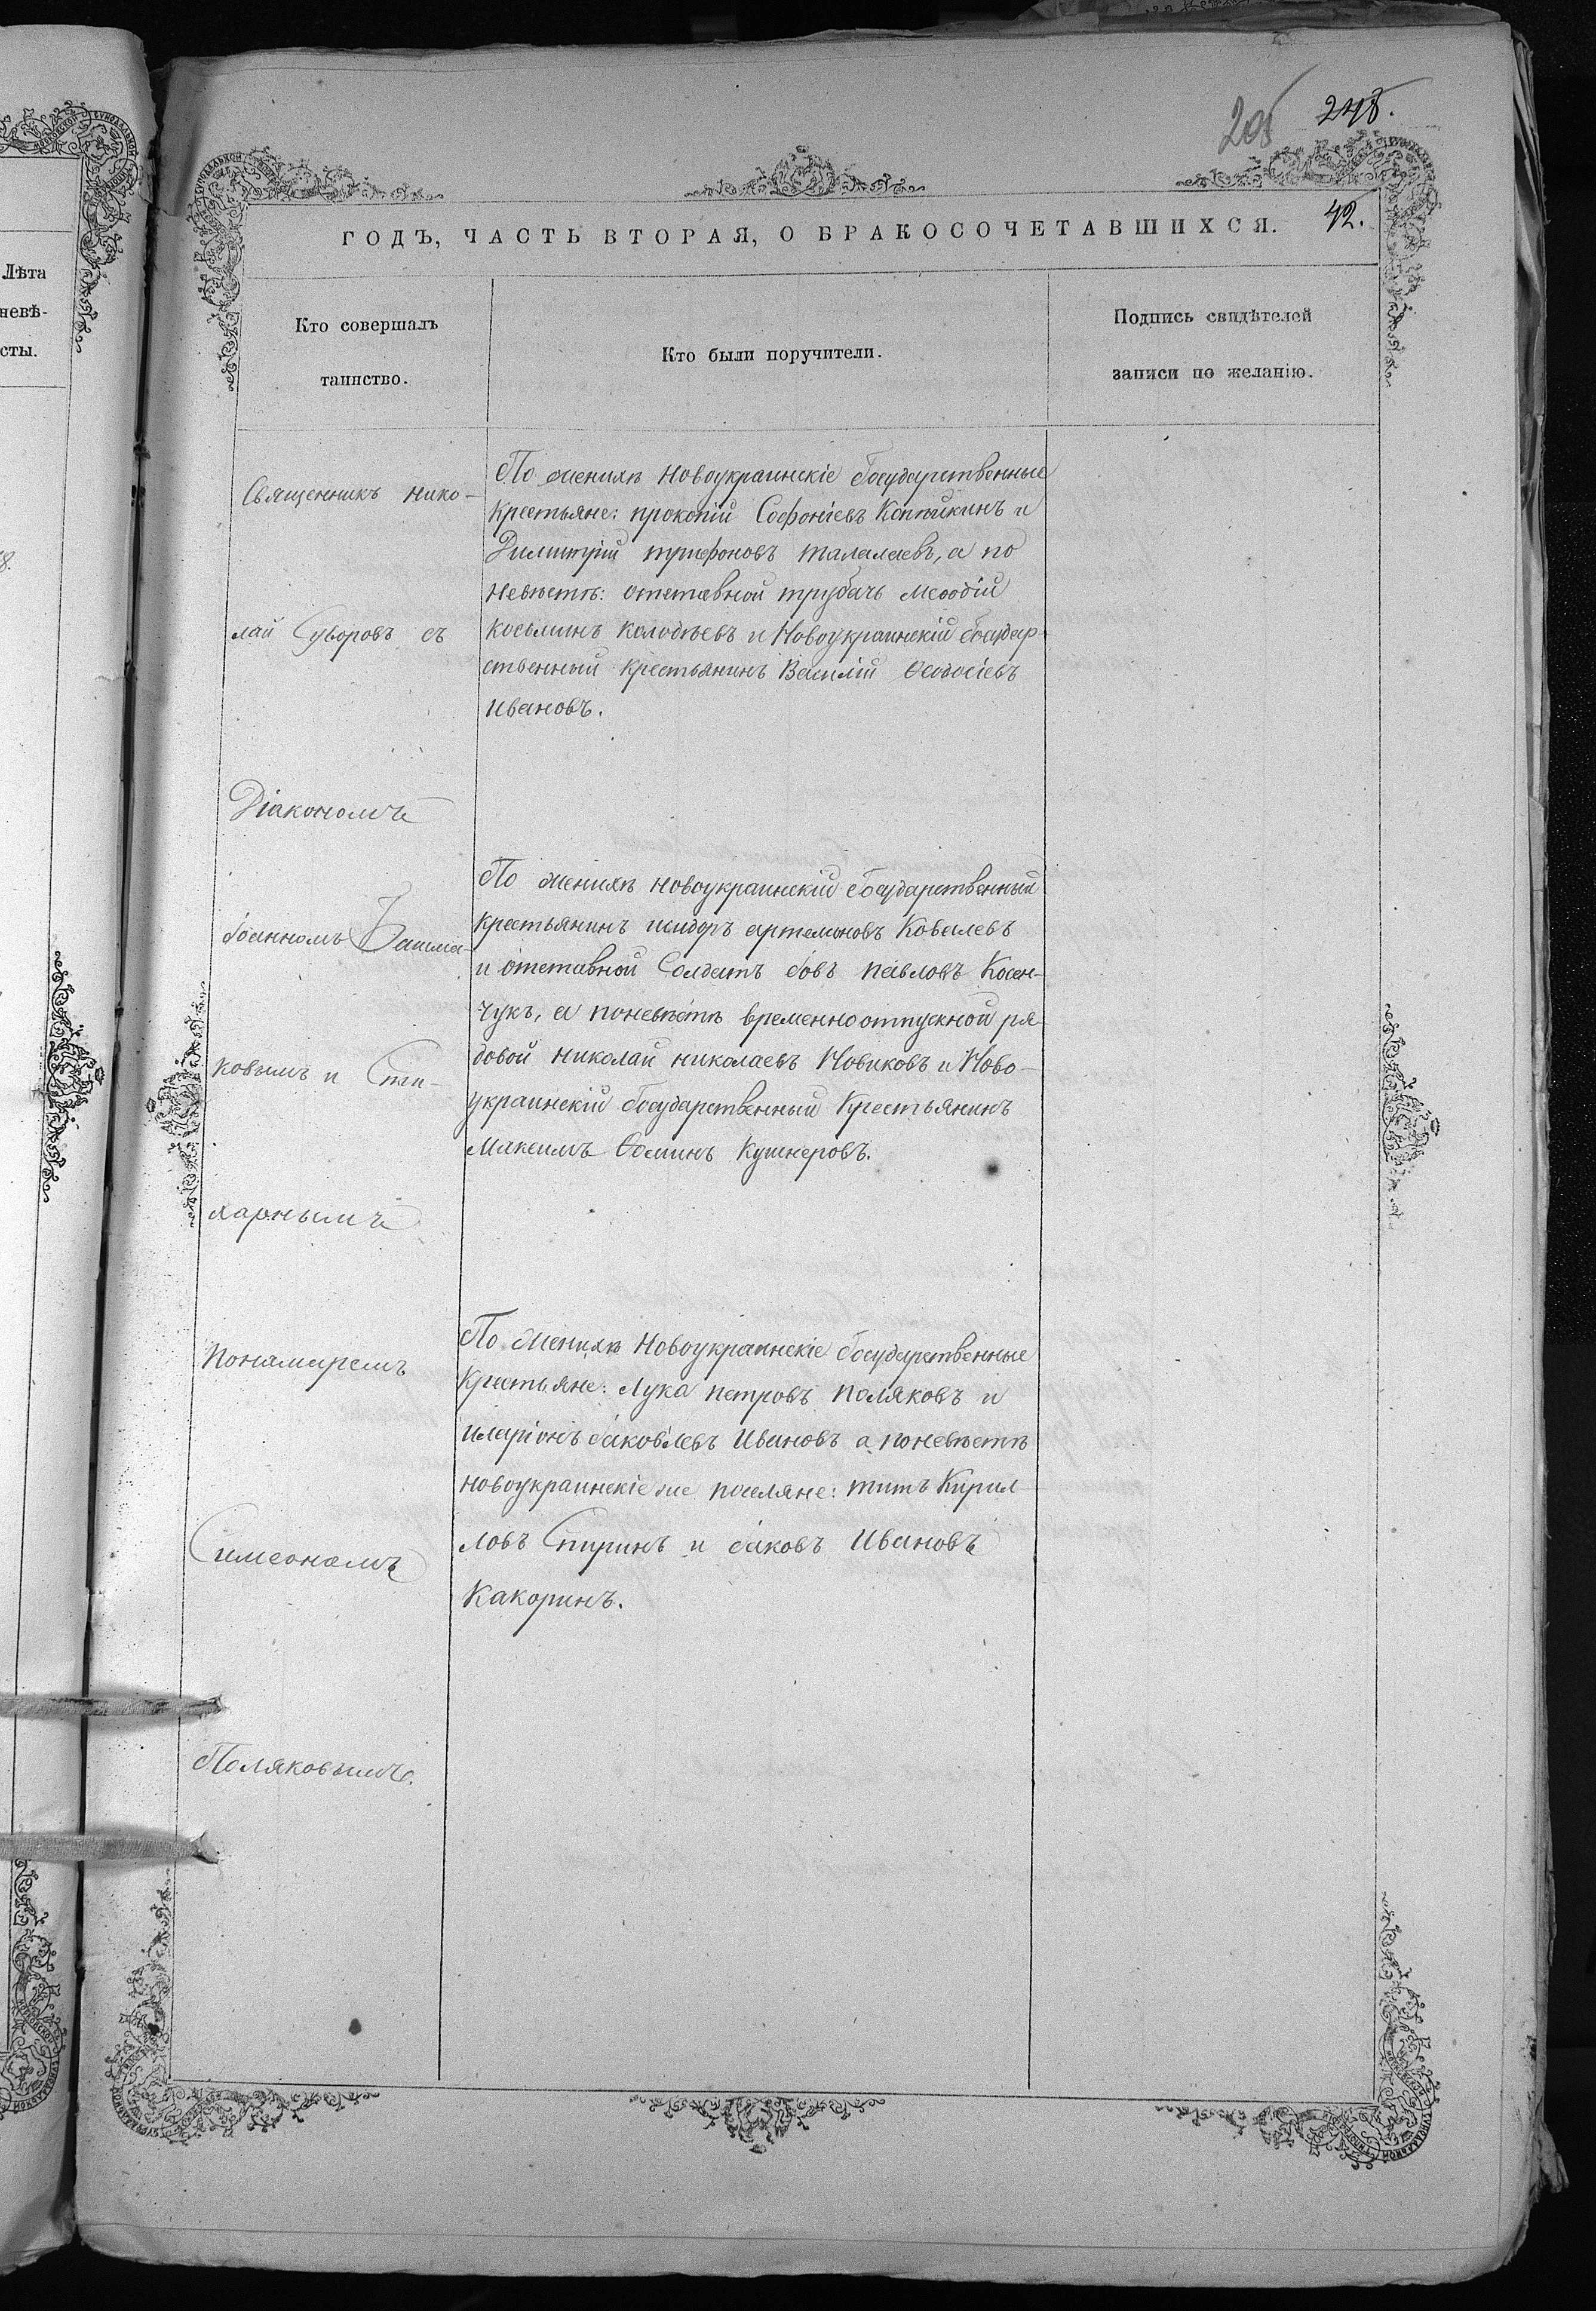 205 248.
42.
ГОДЪ, ЧАСТЬ ВТОРАЯ, О БРАКОСОЧЕТАВШИХСЯ.
Лѣта
невѣ-
сты.
Кто совершалъ
таинство.
Кто были поручители.
Подпись свидѣтелей
записи по желанію.
Священникъ Нико-
лай Суворовъ съ
Діакономъ
Іоанномъ Башма-
ковымъ и Сти-
харнымъ
Понамаремъ
Симеономъ
Поляковымъ.
По женихѣ Новоукраинскіе Государственные
Крестьяне: прокопій Софоніевъ Коптикинъ и
Димитрій трифоновъ талалаевъ, а по
Невѣстѣ: отставной трубачь Меѳодій
косьминъ Колодѣевъ и Новоукраинскій Государ-
ственный Крестьянинъ Василій Ѳеодосіевъ
Ивановъ.
По женихѣ новоукраинскій Государственный
крестьянинъ исидоръ артемоновъ Ковалевъ
и отставной Солдатъ Іовъ павловъ Косен-
чукъ, а поневѣстѣ временноотпускной ря-
довой николай николаевъ Новиковъ и Ново-
украинскій Государственный Крестьянинъ
Максимъ Ѳоминъ Кушнеровъ.
По Женихѣ Новоукраинскіе Государственные
Крестьяне: Лука петровъ поляковъ и
иларіонъ Іаковлевъ Ивановъ а поневѣстѣ
новоукраинскіе же поселяне: титъ Кирил-
ловъ Спиринъ и Іаковъ Ивановъ
Какоринъ.